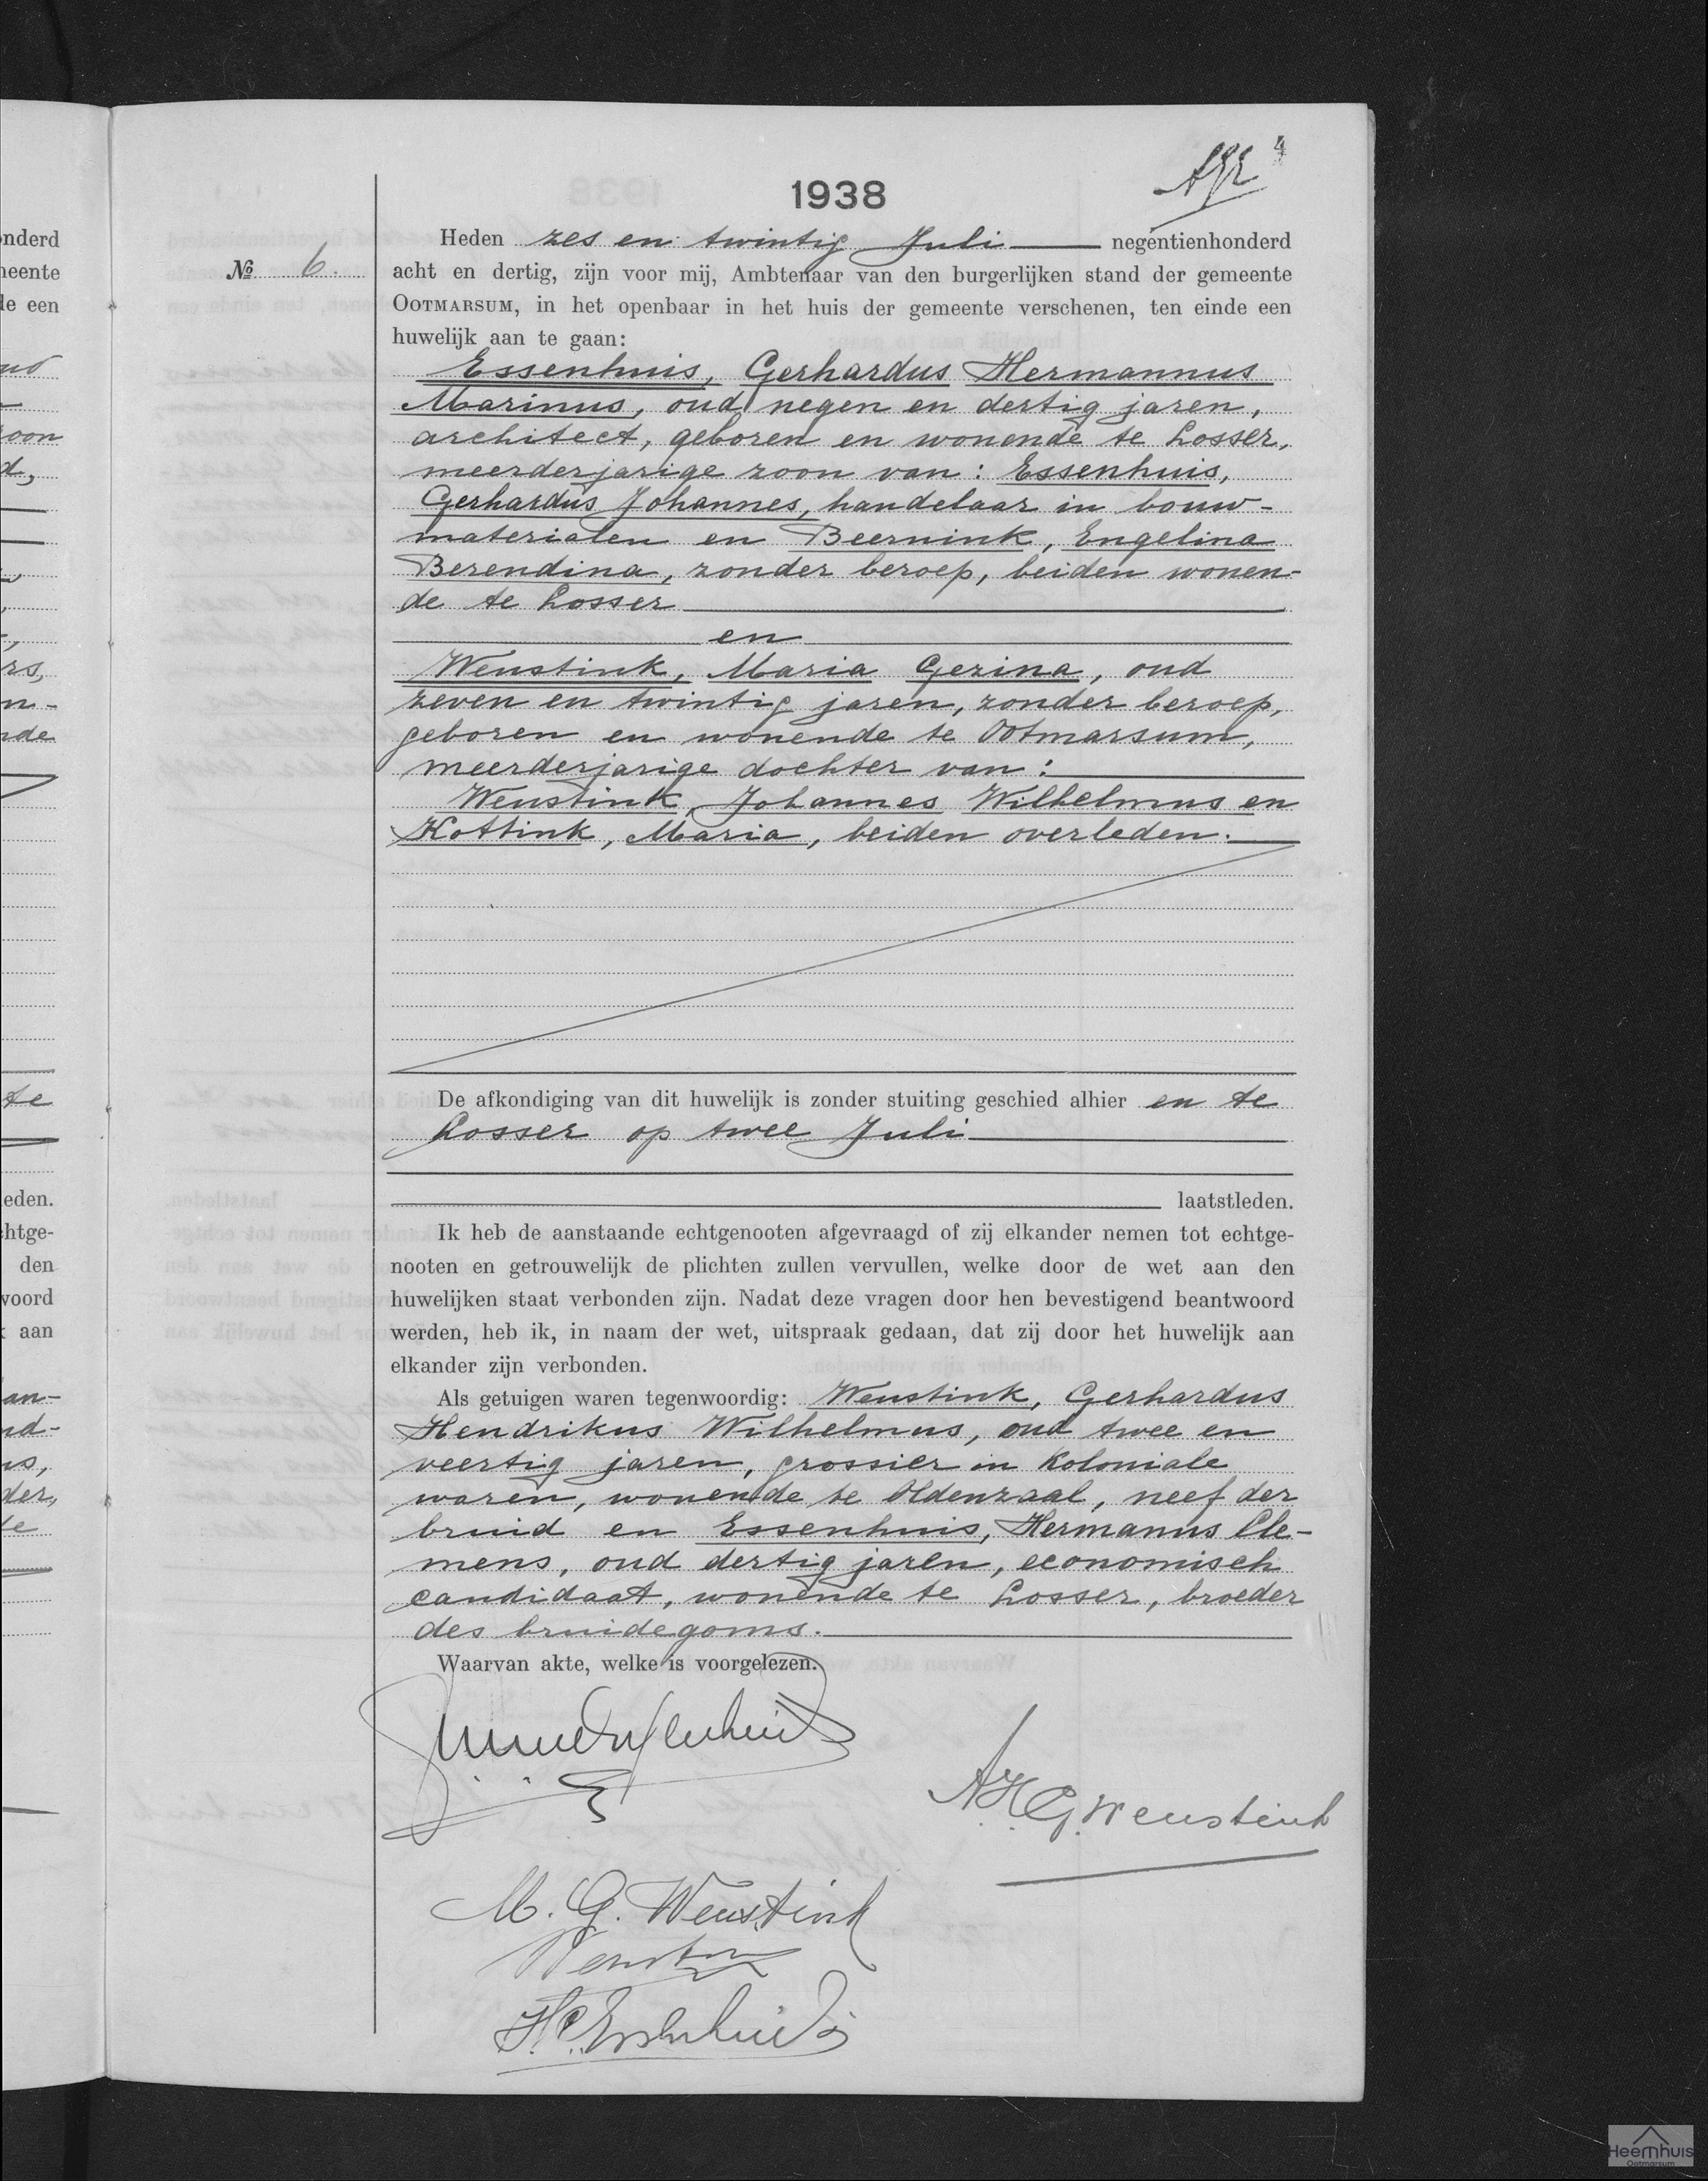 4
1938
Heden zes en twintig Juli negentienhonderd
№ 6.
acht en dertig, zijn voor mij, Ambtenaar van den burgerlijken stand der gemeente
OOTMARSUM, in het openbaar in het huis der gemeente verschenen, ten einde een
huwelijk aan te gaan:
Essenhuis, Gerhardus Hermannus
Marinus, oud negen en dertig jaren,
architect, geboren en wonende te Losser,
meerderjarige zoon van: Essenhuis,
Gerhardus Johannes, handelaar in bouw-
materialen en Beernink, Engelina
Berendina, zonder beroep, beiden wonen-
de te Losser
en
Weustink, Maria Gezina, oud
zeven en twintig jaren, zonder beroep,
geboren en wonende te Ootmarsum,
meerderjarige dochter van:
Weustink, Johannes Wilhelmus en
Kottink, Maria, beiden overleden.
De afkondiging van dit huwelijk is zonder stuiting geschied alhier en te
Losser op twee Juli
laatstleden.
Ik heb de aanstaande echtgenooten afgevraagd of zij elkander nemen tot echtge-
nooten en getrouwelijk de plichten zullen vervullen, welke door de wet aan den
huwelijken staat verbonden zijn. Nadat deze vragen door hen bevestigend beantwoord
werden, heb ik, in naam der wet, uitspraak gedaan, dat zij door het huwelijk aan
elkander zijn verbonden.
Als getuigen waren tegenwoordig: Weustink, Gerhardus
Hendrikus Wilhelmus, oud twee en
veertig jaren, grossier in koloniale
waren, wonende te Oldenzaal, neef der
bruid en Essenhuis, Hermanus Cle-
mens, oud dertig jaren, economisch
candidaat, wonende te Losser, broeder
des bruidegoms.
Waarvan akte, welke is voorgelezen.
A.H.G. Weustink
M. G. Weustink
H.C. Essenhuis
Heemhuis
Ootmarsum